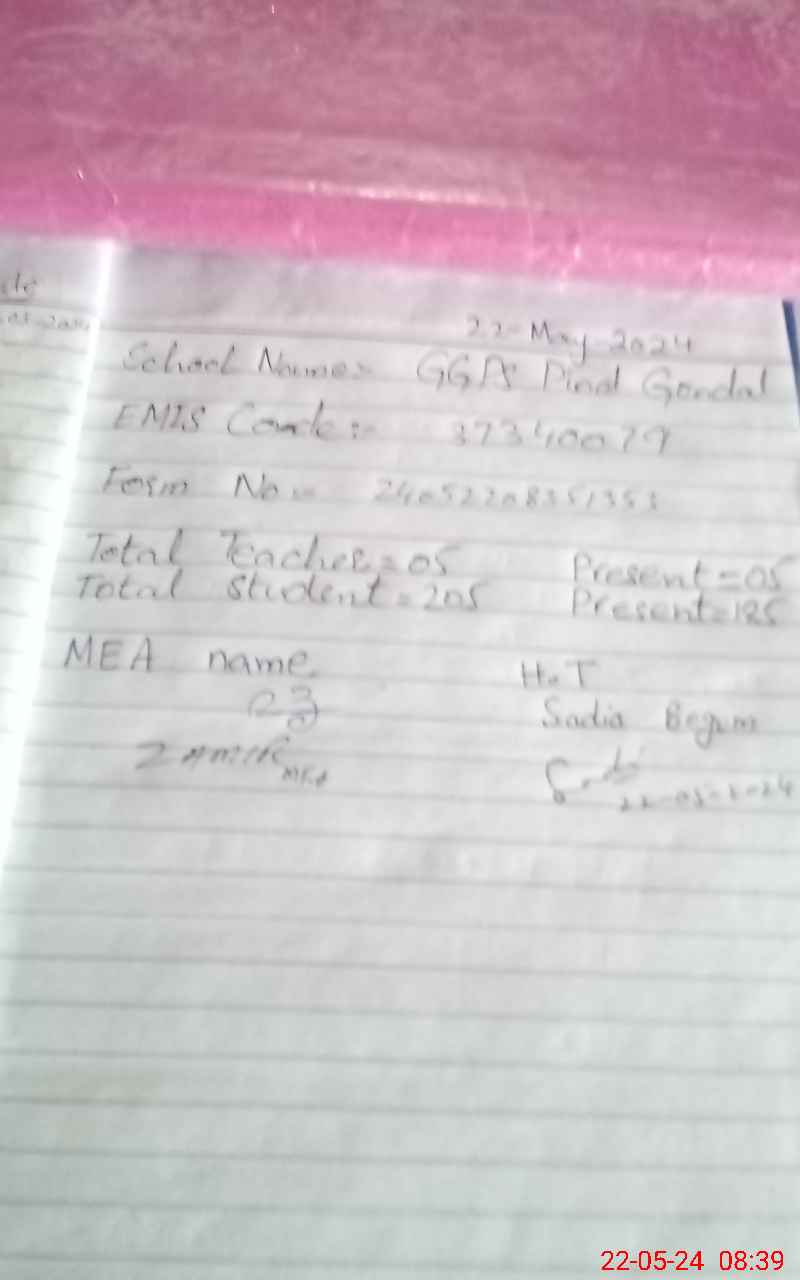 22-May-2024
School Name:- GGPS Pind Gondal
EMIS Code:- 37340079
Form No:- 24052208351353
Total Teacher=05 Present=05
Total Student=205 Present=185
MEA name H.T
Sadia Begum
22-05-2024
22-05-24 08:39